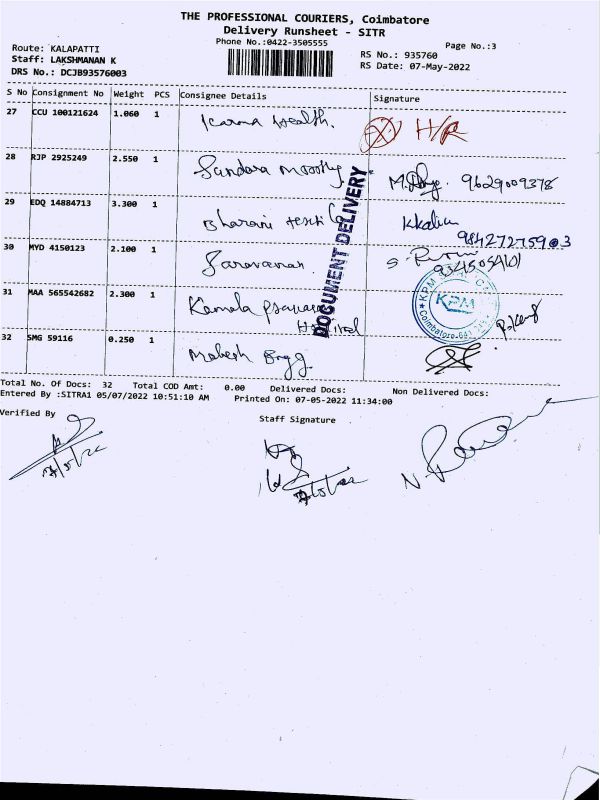 THE PROFESSIONAL COURIERS, Coimbatore
Delivery Runsheet - SITR
Phone No.:0422-3505555
Page No.:3
Route: KALAPATTI
Staff: LAKSHMANAN K
DRS No.: DCJB93576003
RS No.: 935760
RS Date: 07-May-2022
S No Consignment No Weight PCS Consignee Details Signature
27 CCU 100121624 1.060 1 Karma Health.
28 RJP 2925249 2.550 1 Sundara Moorthy 9629009378
29 EDQ 14884713 3.300 1 Bharani
30 MYD 4150123 2.100 1 Saravanan.
31 MAA 565542682 2.300 1 Kamala
Hospital
KPM
Coimbatore
32 SMG 59116 0.250 1 Mahesh
DOCUMENT DELIVERY
Total No. Of Docs: 32 Total COD Amt: 0.00 Delivered Docs: Non Delivered Docs:
Entered By :SITRA1 05/07/2022 10:51:10 AM Printed On: 07-05-2022 11:34:00
Verified By
Staff Signature